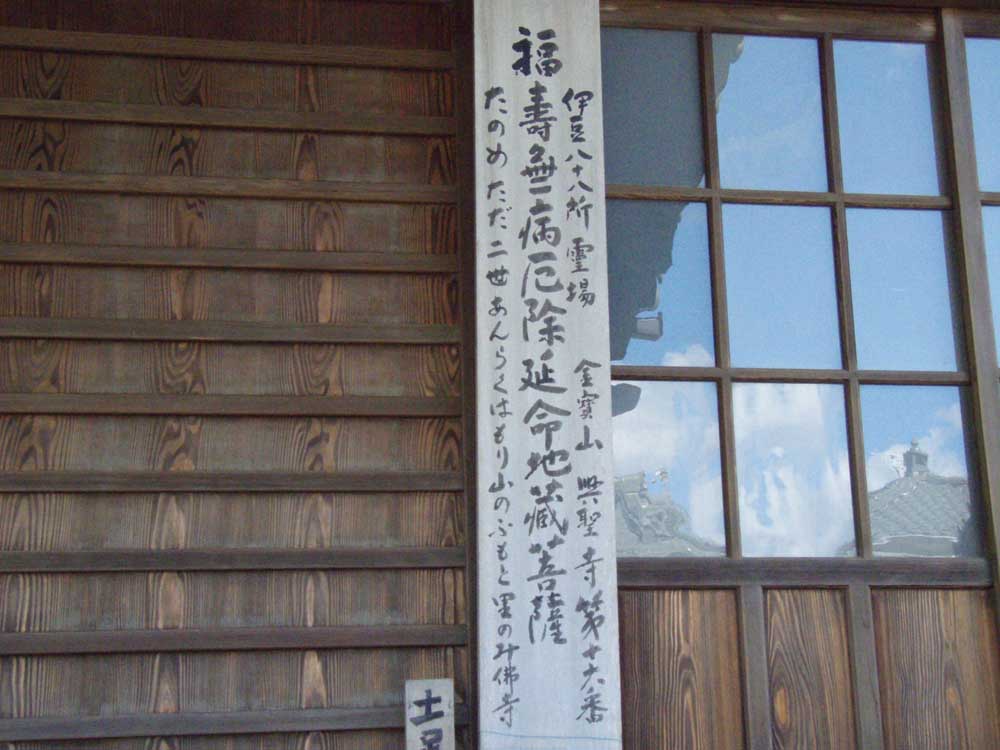 伊豆八十八所霊場 金寳山 興聖寺第廿六番
福壽無病厄除延命地蔵菩薩
たのめただ二世あんらくはもり山のふもと里のみ佛寺
土足